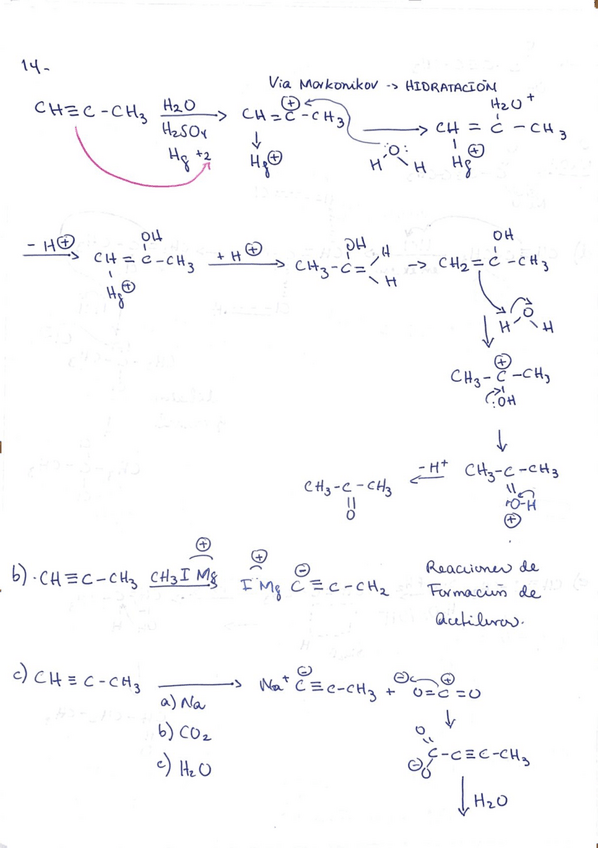 14-
Via Markonikov -> HIDRATACIÓN
CH≡C-CH3 H2O H2SO4 Hg+2 → CH=C⊕-CH3 Hg⊕ H O: H → H2O+ CH=C-CH3 Hg⊕
-H⊕ → OH CH=C-CH3 Hg⊕ +H⊕ → OH CH3-C= H H → OH CH2=C-CH3
H O H
⊕ CH3-C-CH3
:OH
CH3-C-CH3 O ← -H+ CH3-C-CH3
O-H ⊕
b) ·CH≡C-CH3 CH3I Mg ⊕ ⊕ I Mg ⊖ C≡C-CH2 Reacciones de
Formación de
Acetiluros.
c) CH≡C-CH3 → Na+ ⊖ C≡C-CH3 + ⊖ O=C⊕=O
a) Na
b) CO2
c) H2O
O ⊖O C-C≡C-CH3
↓ H2O